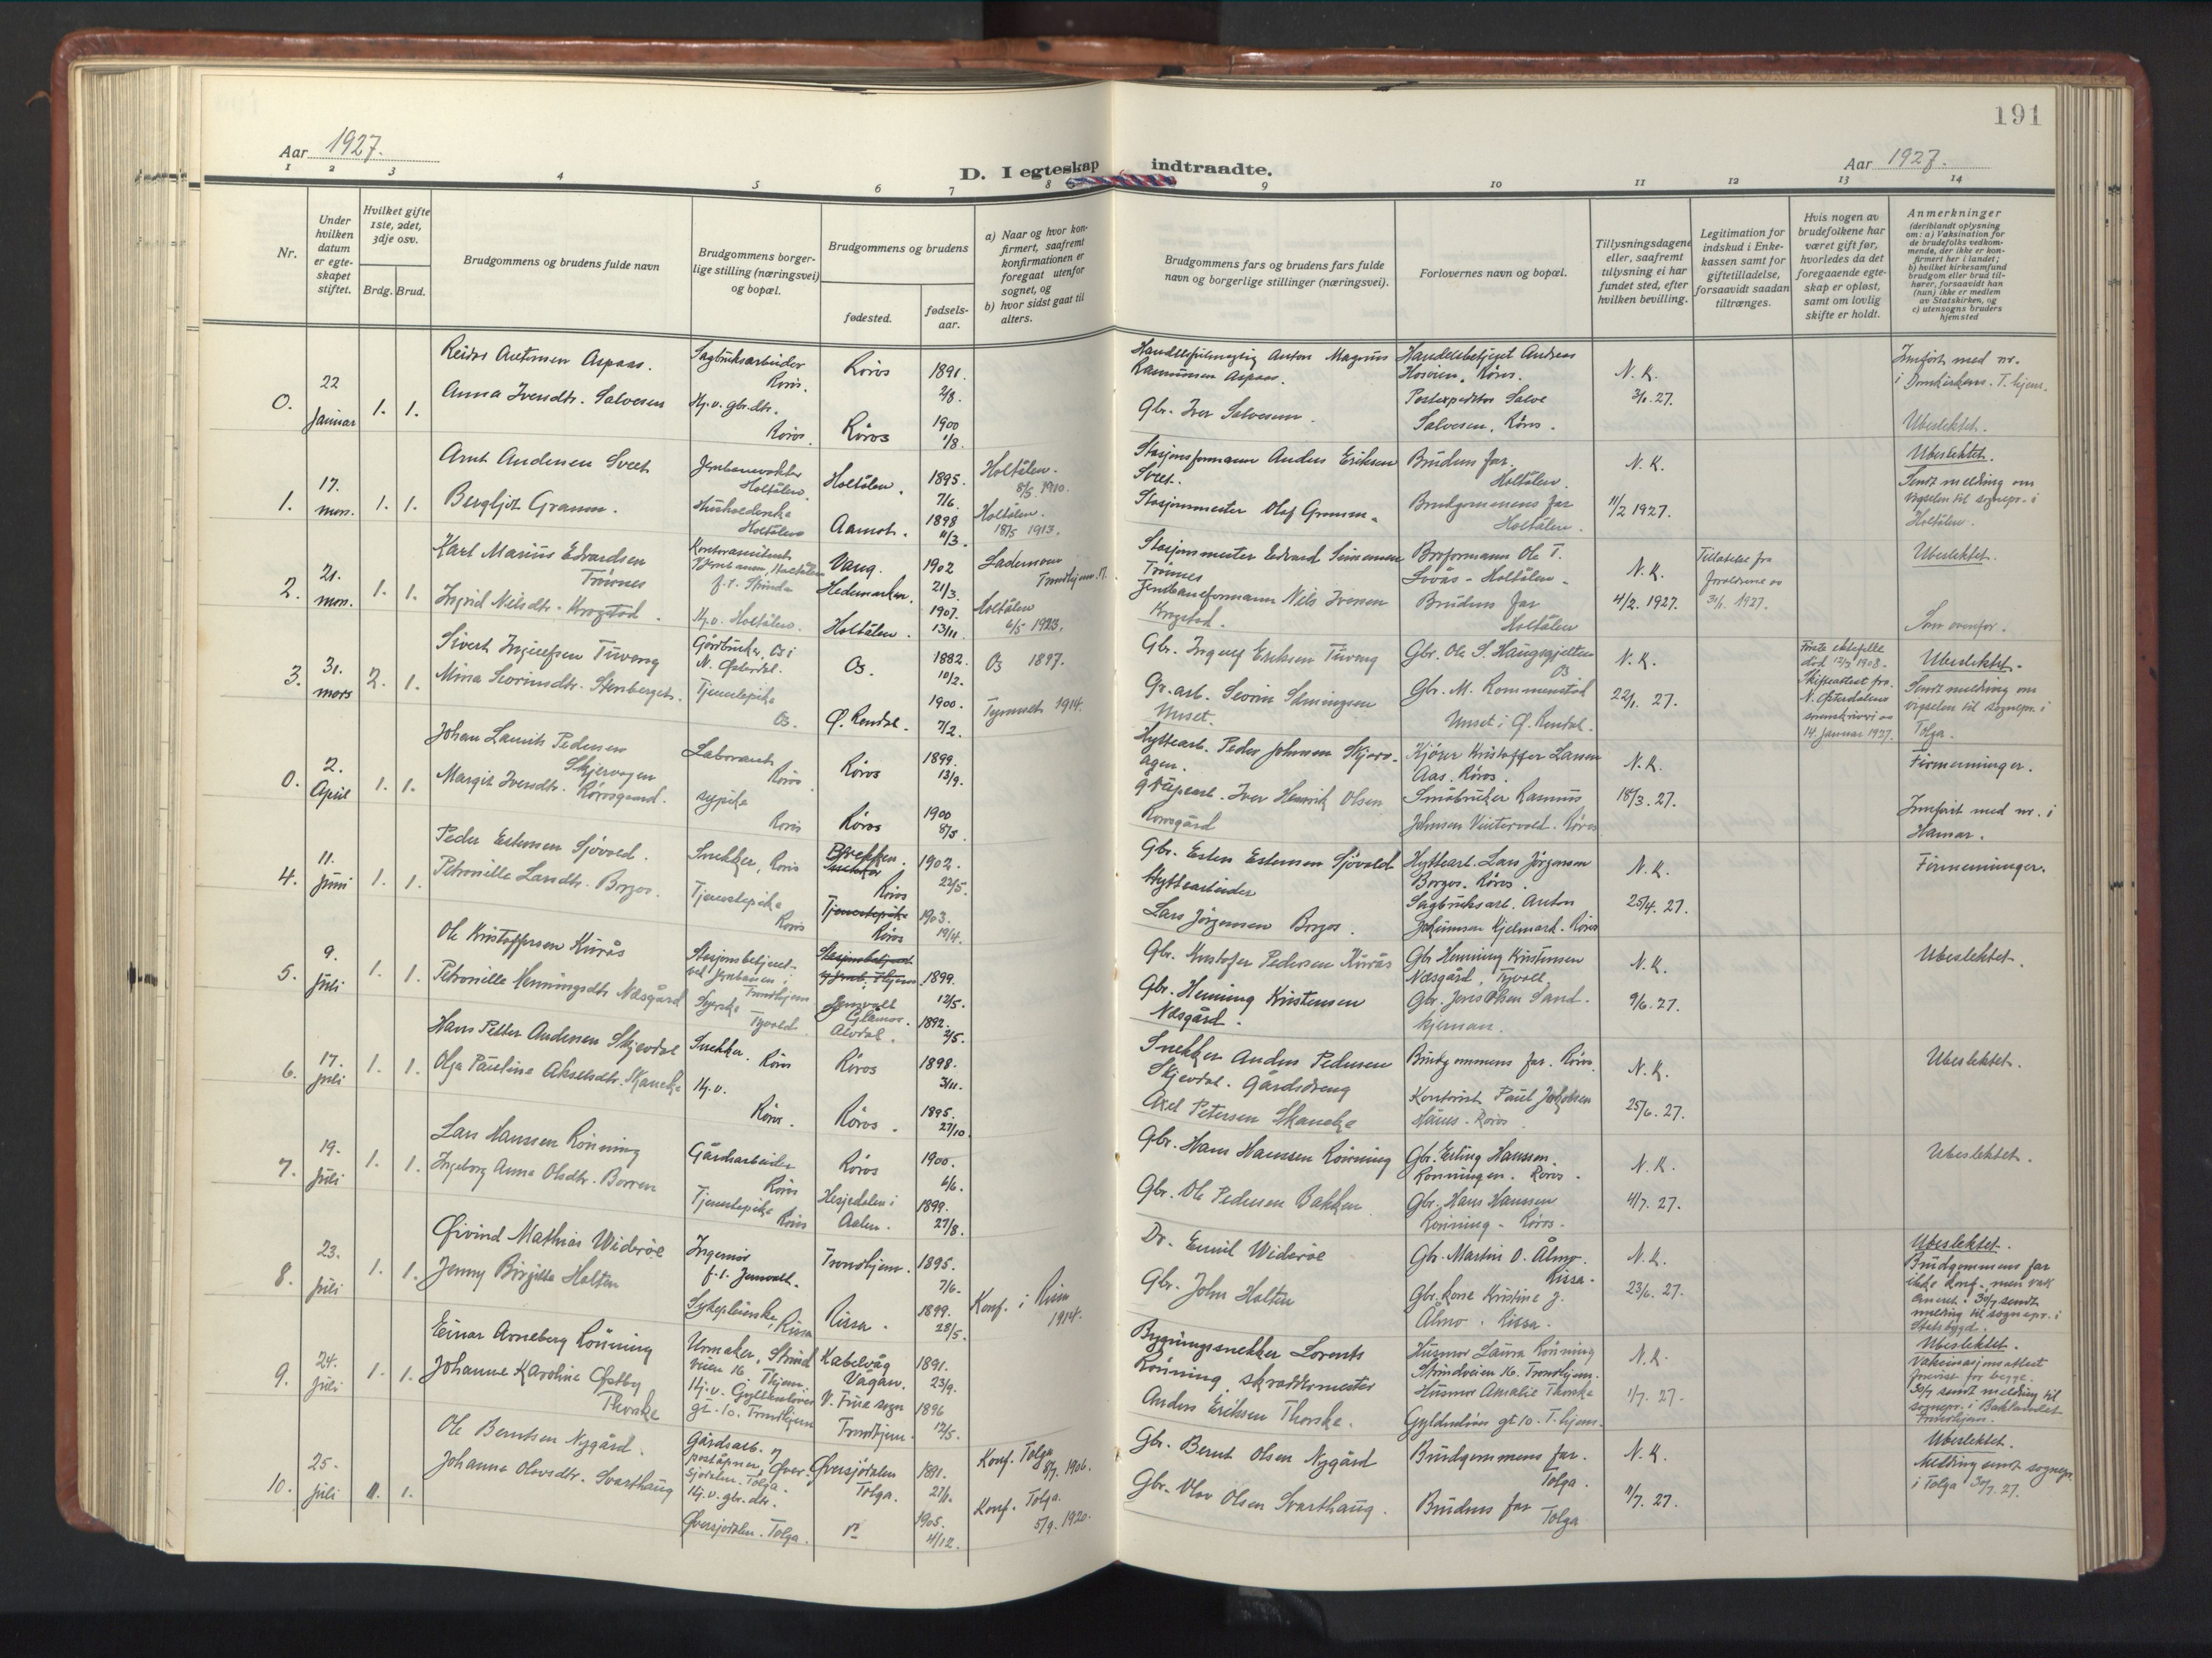 191
Aar 1927.
D. I egteskap indtraadte.
Aar 1927.
1 2 3 4 5 6 7 8 9 10 11 12 13 14
Nr.
Under hvilken datum er egte-skapet stiftet.
Hvilket gifte 1ste, 2det, 3dje osv.
Brdg. Brud.
Brudgommens og brudens fulde navn
Brudgommens borger-lige stilling (næringsvei) og bopæl.
Brudgommens og brudens
fødested.
fødsels-aar.
a) Naar og hvor kon-firmert, saafremt konfirmationen er foregaat utenfor sognet, og
b) hvor sidst gaat til alters.
Brudgommens fars og brudens fars fulde navn og borgerlige stillinger (næringsvei).
Forlovernes navn og bopæl.
Tillysningsdagene eller, saafremt tillysning ei har fundet sted, efter hvilken bevilling.
Legitimation for indskud i Enke-kassen samt for giftetilladelse, forsaavidt saadan tiltrænges.
Hvis nogen av brudefolkene har været gift før, hvorledes da det foregaaende egte-skap er opløst, samt om lovlig skifte er holdt.
Anmerkninger (deriblandt oplysning om: a) Vaksination for de brudefolks vedkom-mende, der ikke er kon-firmert her i landet; b) hvilket kirkesamfund brudgom eller brud til-hører, forsaavidt han (hun) ikke er medlem av Statskirken, og c) utensogns bruders hjemsted
0.
22 Januar
1. 1.
Reidar Antonsen Aspaas.
Anna Iversdtr. Salvesen
Sagbruksarbeider
Røros.
Hj.v. gbr.dtr.
Røros.
Røros
Røros
1891.
2/8.
1900
1/8.
Anton Magnus
Rasmussen Aspaas.
Gbr. Iver Salvesen.
Handelsbetjent Andreas
Røros.
Postexpeditør Salve
Salvesen, Røros.
N. K.
3/1. 27.
Innført med nr.
i Domkirken. T.hjem.
Ubeslektet.
1.
17. mars.
1. 1.
Arnt Andersen Sveet
Bergljot Gramm.
Holtålen.
Husholderske
Holtålen
Holtålen.
Aamot.
1895.
7/6.
1898
11/3.
Holtålen.
8/5. 1910.
Holtålen.
18/5 1913.
Stasjonsformann Anders Eriksen
Sveet.
Stasjonmester Olaf Gramm.
Brudens far.
Holtålen.
Brudgommens far
Holtålen.
N. K.
11/2 1927.
Ubeslektet.
Sendt melding om
vigselen til sognepr. i
Holtålen.
2.
21. mars.
1. 1.
Karl Marius Edvardsen
Trønnes
Ingrid Nilsdtr. Krogstad.
Jernbanen, Holtålen
f.t. Strinda
Hj.v. Holtålen.
Vang.
Hedemarken.
Holtålen.
1902
21/3.
1907.
13/11.
Lademoen
Trondhjem.
Holtålen
6/5 1923.
Stasjonmester Edvard Simensen
Trønnes
Jernbaneformann Nils Iversen
Krogstad.
Broformann Ole T.
Holtålen.
Brudens far
Holtålen
N. K.
4/2. 1927.
Tillatelse fra
foreldrene av
31/1. 1927.
Ubeslektet.
Som ovenfor.
3.
31. mars
2. 1.
Sivert Ingulfsen Tuveng
Mina Sevrinsdtr. Stenberget.
Gårdbruker, Os i
N. Østerdal.
Tjenestepike
Os.
Os.
Ø. Rendal.
1882.
10/2.
1900.
7/2.
Os 1897.
Tynnset 1914.
Gbr. Ingulf Eriksen Tuveng
Gr. arb. Sevrin Simingsen
Unset.
Gbr. Ole S.
Os
Gbr. M. Rommenstad
Unset i Ø. Rendal.
N. K.
22/1. 27.
Første ektefelle
død 12/3 1908.
Skifteattest fra
N. Østerdalens
sorenskriveri av
14. Januar 1927.
Ubeslektet.
Sendt melding om
vigselen til sognepr. i
Tolga.
0.
2. April
1. 1.
Johan Laurits Pedersen
Skjervagen
Margit Iversdtr. Rørosgaard.
Laborant
Røros
sypike
Røros
Røros
Røros
1899.
13/9.
1900
8/5.
Hyttearb. Peder Johnsen Skjerv-
agen.
Iver Henrik Olsen
Rørosgård
Kjører Kristoffer Larsen
Aas. Røros.
Småbruker Rasmus
Johnsen Vintervold. Røros
N. K.
18/3. 27.
Firmenninger.
Innført med nr. i
Hamar.
4.
11. Juni
1. 1.
Peder Estensen Sjøvold.
Petronille Larsdtr. Borgos.
Snekker, Røros
Tjenestepike
Røros
Brekken.
Snekker
Røros
Tjenestepike
Røros
1902.
22/5.
1903.
19/4.
Gbr. Esten Estensen Sjøvold
Hyttearbeider
Lars Jörgensen Borgos.
Hyttearb. Lars Jörgensen
Borgos. Røros.
Sagbruksarb. Anton
Johannsen Kjelmark. Røros
N. K.
25/4. 27.
Firmenninger.
5.
9. Juli
1. 1.
Ole Kristoffersen Kurås
Petronille Henningsdtr Næsgård
Stasjonsbetjent
ved Jernbanen i
Trondhjem
Syerske
Tyvold
Glåmos.
Alvdal.
1899.
12/5.
1892.
2/5.
Gbr. Kristofer Pedersen Kurås
Gbr. Henning Kristensen
Næsgård.
Gbr Henning Kristensen
Næsgård, Tyvoll.
Gbr. Jens Olsen Sand-
N. K.
9/6. 27.
Ubeslektet.
6.
17. Juli
1. 1.
Hans Petter Andersen Skjevdal
Olga Pauline Akselsdtr. Skancke
Snekker. Røros
Hj.v.
Røros.
Røros
Røros.
1898.
3/11.
1895.
27/10.
Snekker Anders Pedersen
Skjevdal. Gårdsdreng
Axel Petersen Skancke
Brudgommens far. Røros.
Kontorist Paul Jakobsen
Røros.
N. K.
25/6. 27.
Ubeslektet.
7.
19. Juli
1. 1.
Lars Hanssen Rönning
Ingeborg Anna Olsdtr. Borren
Gårdsarbeider
Røros
Tjenestepike Røros
Røros
Hesjedalen i
Aalen.
1900.
6/6.
1899.
27/8.
Gbr. Hans Hanssen Rönning
Gbr. Ole Pedersen Bakken
Gbr. Erling Hanssen
Rønningen. Røros.
Gbr. Hans Hanssen
Rönning. Røros.
N. K.
4/7. 27.
Ubeslektet.
8.
23. Juli
1. 1.
Øivind Mathias Widerøe
Jenny Birgitte Holten
Ingeniør
Sykepleierske, Rissa
Trondhjem.
Rissa.
1895.
7/6.
1899.
28/5.
Konf. i Rissa
1914.
Dr. Emil Widerøe
Gbr. John Holten
Gbr. Martin O. Ålmo.
Rissa.
Gbr.kone Kristine J.
Ålmo. Rissa.
N. K.
23/6. 27.
Ubeslektet.
Brudgommens far
ikke konf. men vak
30/7 sendt
melding til sognepr. i
Stadsbygd.
9.
24. Juli
1. 1.
Einar Arneberg Rönning
Johanne Karoline Østby
Thorske
Urmaker, Strind
veien 16 T.hjem.
Hj.v. Gyldenløves
gt. 10. Trondhjem
Kabelvåg
Vågan.
V. Frue sogn
Trondhjem.
1891.
23/9.
1896
12/5.
Bygningssnekker Lorents
Rönning skreddermester
Anders Eriksen Thorske.
Husmor Laura Rönning
Strindveien 16. Trondhjem.
Husmor Amalie Thorske
Gyldenløves gt 10. T.hjem.
N. K.
1/7. 27.
Ubeslektet.
Vaksinasjonsattest
forevist for begge.
30/7 sendt melding til
sognepr. i Baklandet
Trondhjem.
10.
25. Juli
1. 1.
Ole Berntsen Nygård.
Johanna Olavsdtr. Svarthaug
Gårdsarb. og
poståpner, Øver-
sjødalen. Tolga.
Hj.v. gbr.dtr.
Øversjødalen. Tolga.
Øversjødalen
Tolga.
1891.
1905.
4/12.
Konf. Tolga
8/7. 1906.
Konf. Tolga.
5/9. 1920.
Gbr. Bernt Olsen Nygård
Gbr. Olav Olsen Svarthaug.
Brudgommens far.
Tolga.
Brudens far
Tolga
N. K.
11/7. 27.
Ubeslektet.
Melding sendt sognepr.
i Tolga 30/7. 27.